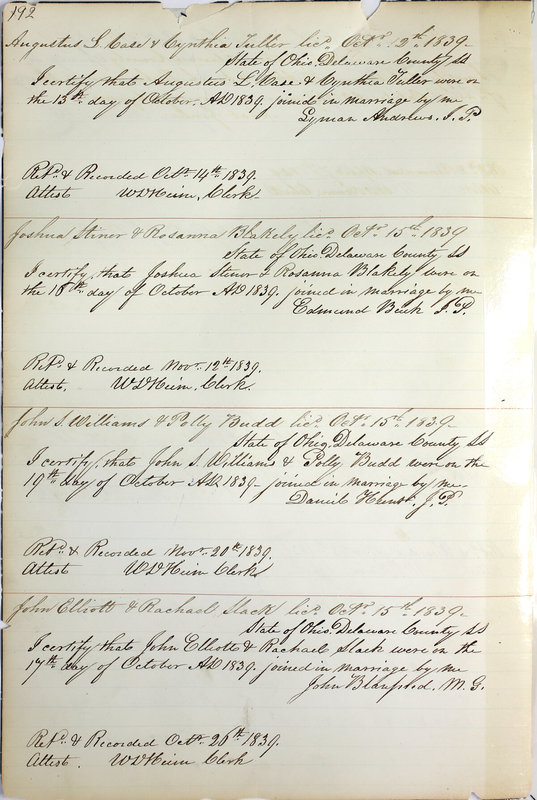 192
Augustus L. Case & Cynthia Tuller licd. Octr. 12th. 1839-
State of Ohio Delaware County SS
I certify that Augustus L. Case & Cynthia Tuller were on
the 13th day of October AD 1839. joined in marriage by me
Lyman Andrews. J. P.
Retd. & Recorded Octr. 14th 1839.
Attest W D Heim, Clerk.
Joshua Stiner & Rosanna Blakely licd. Octr. 15th. 1839
State of Ohio Delaware County SS
I certify, that Joshua Stiner & Rosanna Blakely were on
the 16th day of October AD 1839. joined in marriage by me
Edmund Buck J. P.
Retd. & Recorded Novr. 12th 1839.
Attest, W D Heim, Clerk.
John S. Williams & Polly Budd licd. Octr. 15th. 1839-
State of Ohio, Delaware County SS
I certify, that John S. Williams & Polly Budd were on the
19th day of October AD. 1839- joined in marriage by me-
Daniel Hunt. J. P.
Retd. & Recorded Novr. 20th 1839.
Attest W D Heim Clerk
John Elliott & Rachael Slack licd. Octr. 15th. 1839-
State of Ohio. Delaware County SS
I certify that John Elliott & Rachael Slack were on the
17th day of October AD 1839. joined in marriage by me
John Blanpied. M. G.
Retd. & Recorded Octr. 26th 1839.
Attest. W D Heim Clerk